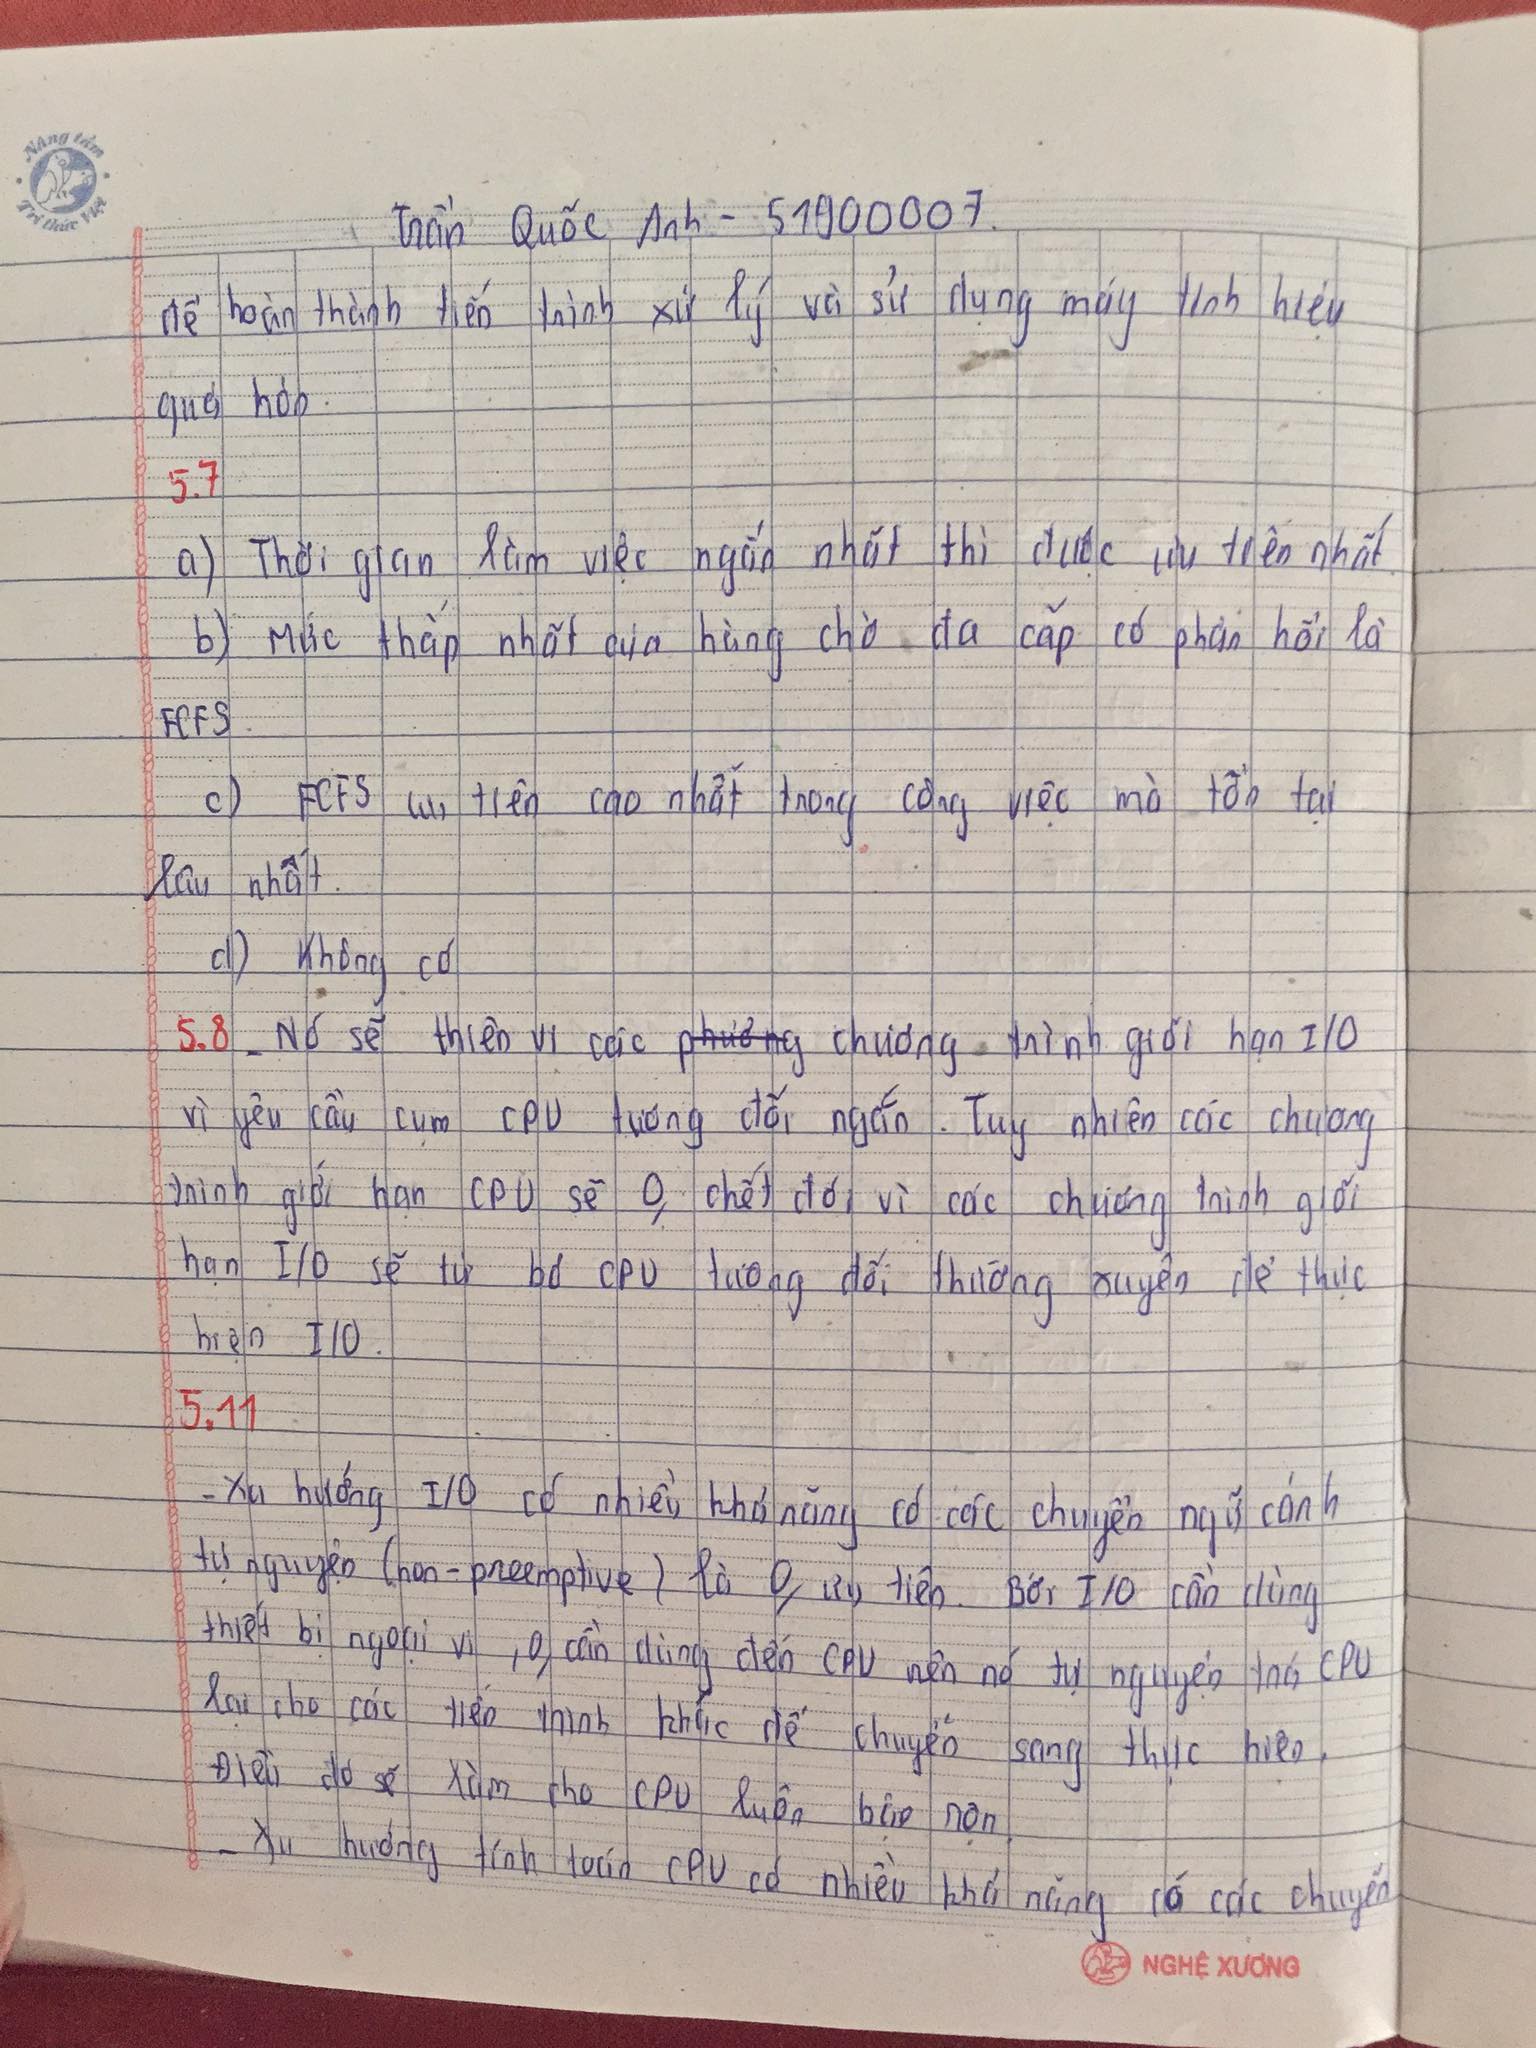 Nâng tầm
Trí thức Việt
Trần Quốc Anh - 51900007.
để hoàn thành tiến trình xử lý và sử dụng máy tính hiệu
quả hơn.
5.7
a) Thời gian làm việc ngắn nhất thì được ưu tiên nhất
b) Mức thấp nhất của hàng chờ đa cấp có phản hồi là
FCFS.
c) FCFS ưu tiên cao nhất trong công việc mà tồn tại
lâu nhất.
d) Không có
5.8 - Nó sẽ thiên vị các phương chương trình giới hạn I/O
vì yêu cầu cụm CPU tương đối ngắn. Tuy nhiên các chương
trình giới hạn CPU sẽ 0, chết đói vì các chương trình giới
hạn I/O sẽ từ bỏ CPU tương đối thường xuyên để thực
hiện I/O.
5.11
- Xu hướng I/O có nhiều khả năng có các chuyển ngữ cảnh
tự nguyện (non-preemptive) là 0, ưu tiên. Bởi I/O cần dùng
thiết bị ngoại vi, 0, cần dùng đến CPU nên nó tự nguyện trả CPU
lại cho các tiến trình khác để chuyển sang thực hiện.
Điều đó sẽ làm cho CPU luôn bận rộn.
- Xu hướng tính toán CPU có nhiều khả năng có các chuyển
NGHỆ XƯƠNG